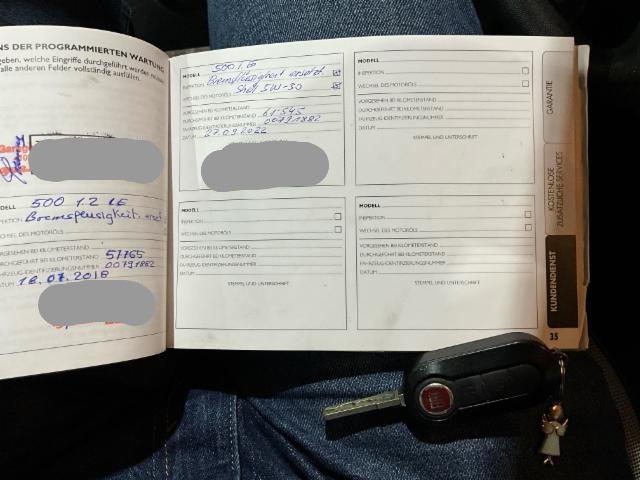 NS DER PROGRAMMIERTEN WARTUNG
geben, welche Eingriffe durchgeführt worden
alle anderen Felder vollständig ausfüllen.
500 1.2 LE
WECHSEL DES MOTORÖLS
VORGESEHEN BEI KILOMETERSTAND
DURCHGEFÜHRT BEI KILOMETERSTAND 51765
FAHRZEUG-IDENTIFIZIERUNGSNUMMER 00791882
DATUM 18.07.2018
MODELL
INSPEKTION Bremsflüssigkeit ersetzt
WECHSEL DES MOTORÖLS Shell 5W-30
VORGESEHEN BEI KILOMETERSTAND
DURCHGEFÜHRT BEI KILOMETERSTAND 61'545
FAHRZEUG-IDENTIFIZIERUNGSNUMMER 00791882
DATUM 07.09.2022
MODELL
INSPEKTION
WECHSEL DES MOTORÖLS
VORGESEHEN BEI KILOMETERSTAND
DURCHGEFÜHRT BEI KILOMETERSTAND
FAHRZEUG-IDENTIFIZIERUNGSNUMMER
DATUM
STEMPEL UND UNTERSCHRIFT
MODELL
INSPEKTION
WECHSEL DES MOTORÖLS
VORGESEHEN BEI KILOMETERSTAND
DURCHGEFÜHRT BEI KILOMETERSTAND
FAHRZEUG-IDENTIFIZIERUNGSNUMMER
DATUM
STEMPEL UND UNTERSCHRIFT
MODELL
INSPEKTION
WECHSEL DES MOTORÖLS
VORGESEHEN BEI KILOMETERSTAND
DURCHGEFÜHRT BEI KILOMETERSTAND
FAHRZEUG-IDENTIFIZIERUNGSNUMMER
DATUM
STEMPEL UND UNTERSCHRIFT
GARANTIE
KOSTENLOSE
ZUSÄTZLICHE SERVICES
KUNDENDIENST
35
FIAT